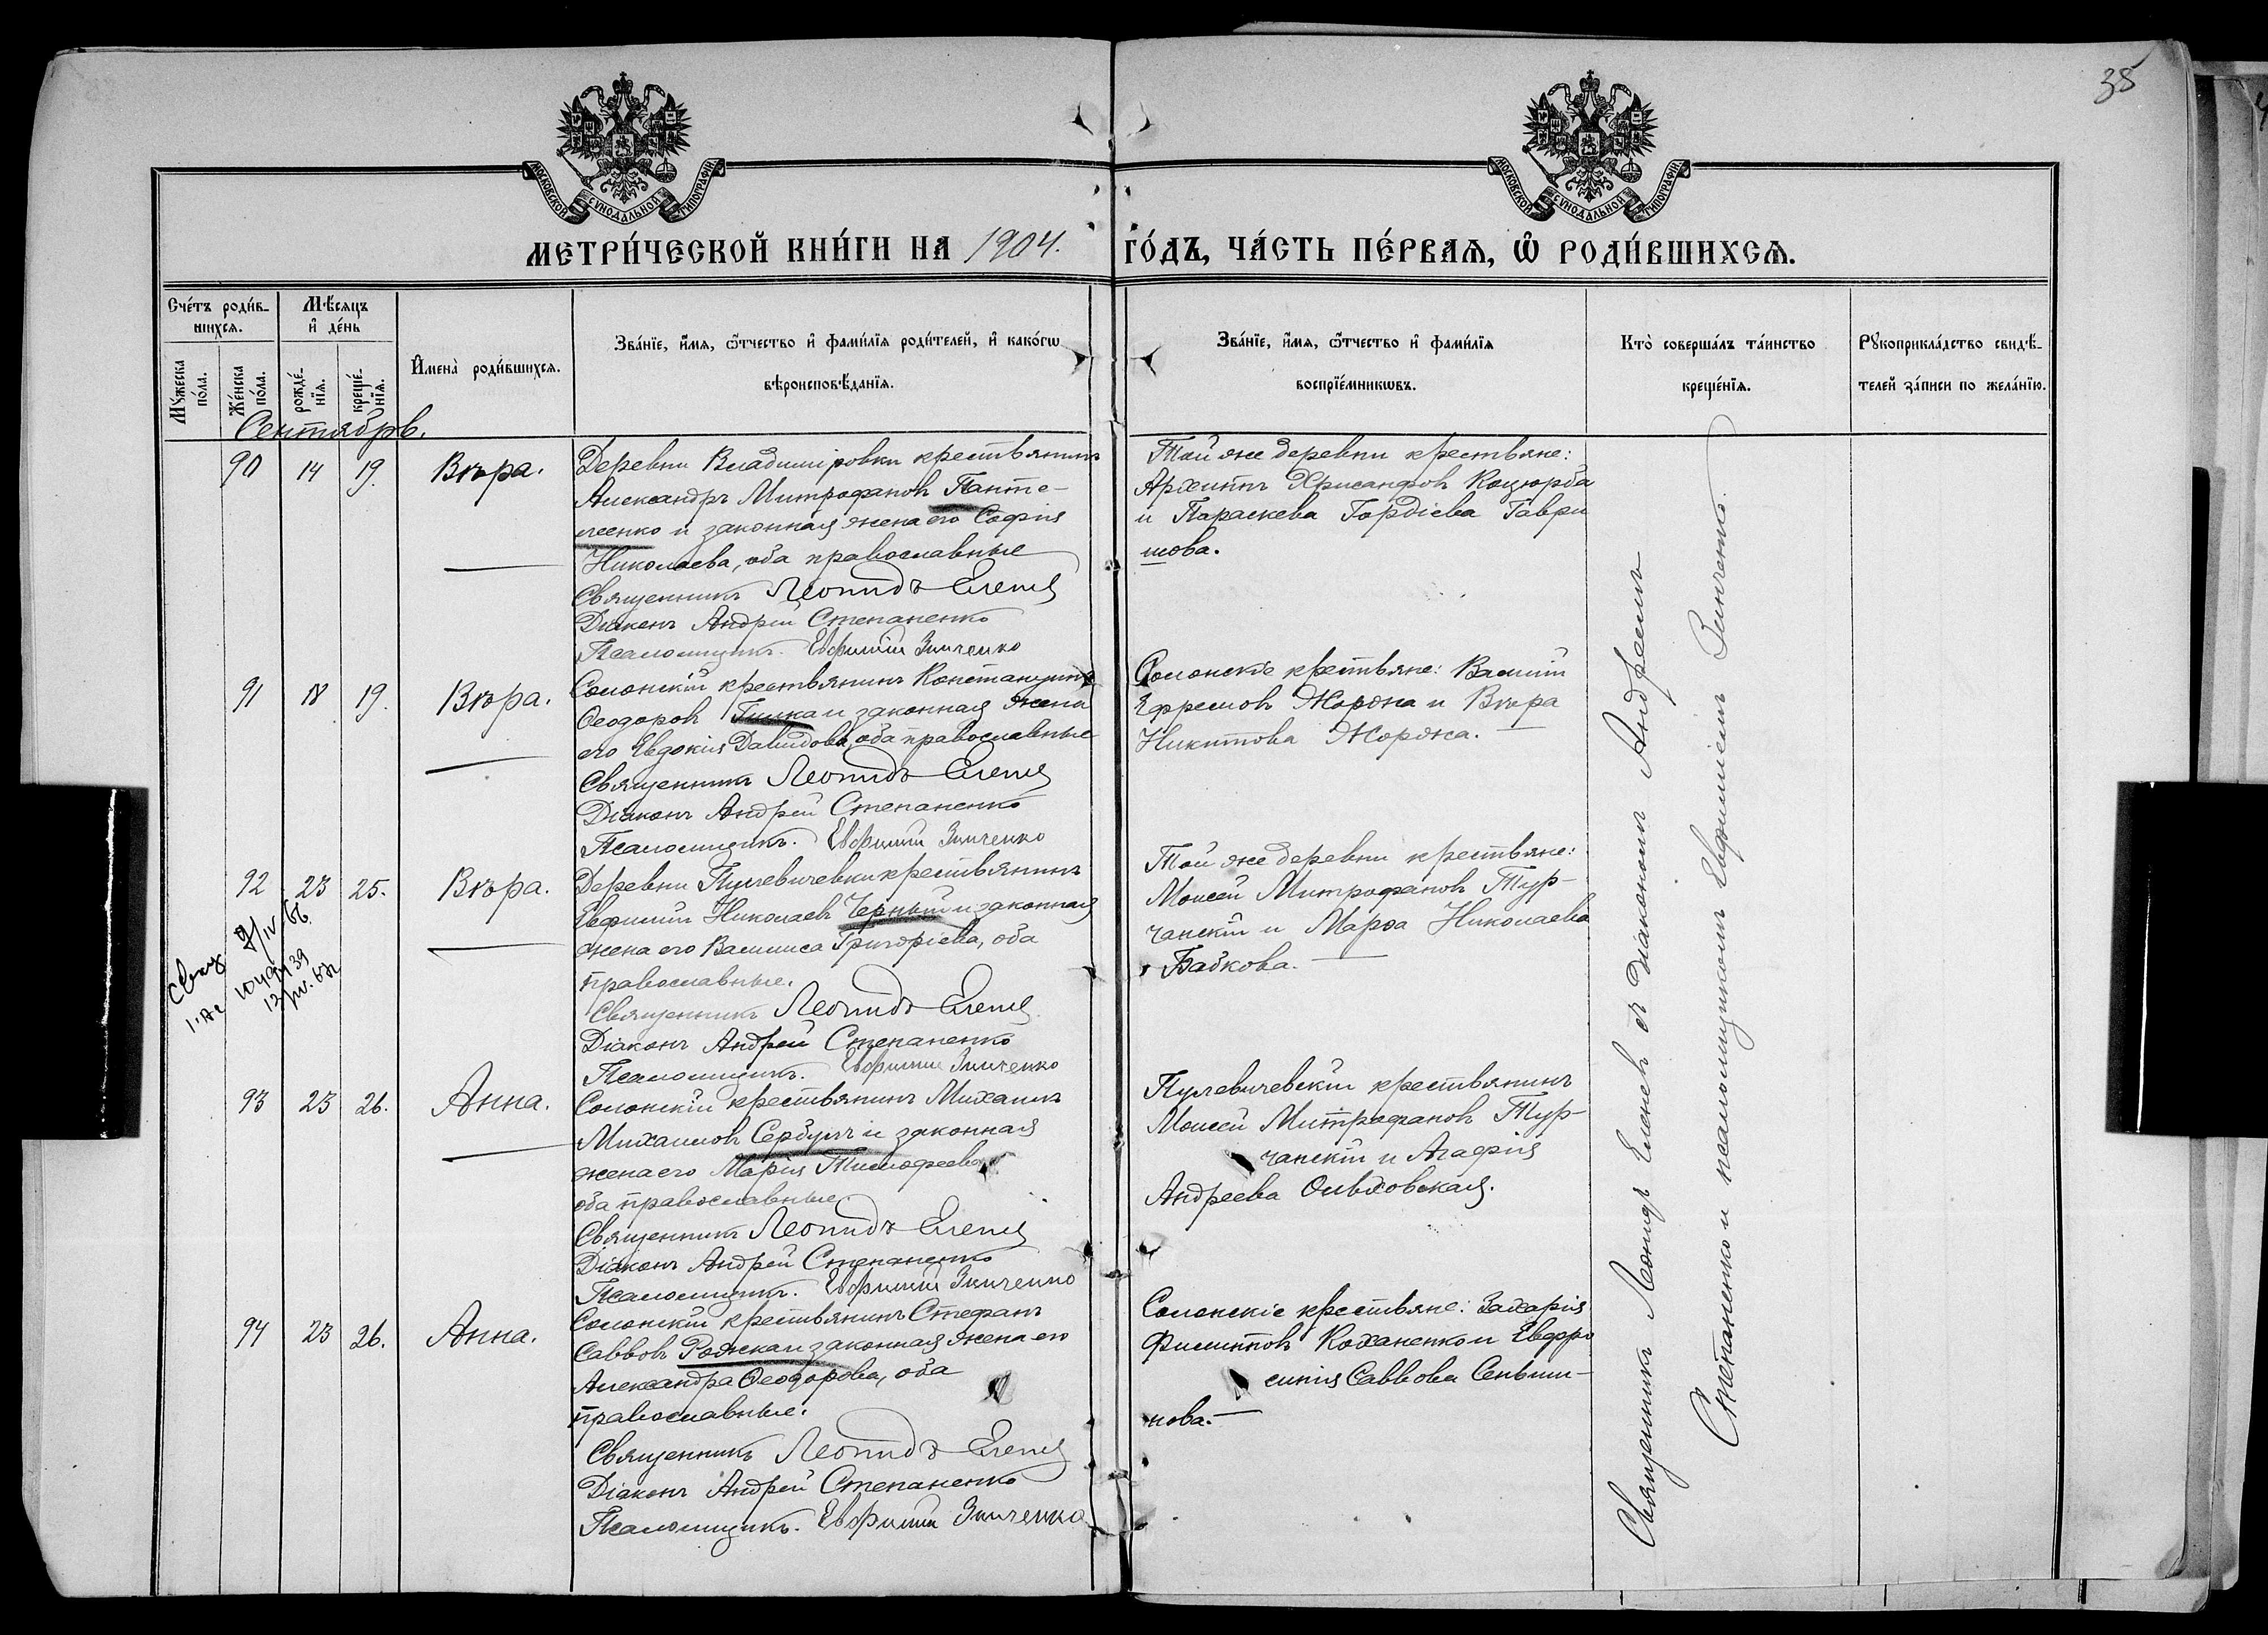 38
МОСКОВСКОЙ СѴНОДАЛЬНОЙ ТИПОГРАФІИ
МОСКОВСКОЙ СѴНОДАЛЬНОЙ ТИПОГРАФІИ
МЕТРИ́ЧЕСКОЙ КНИ́ГИ НА 1904. ГО́ДЪ, ЧА́СТЬ ПЕ́РВАѦ, Ѡ҆ РОДИ́ВШИХСѦ.
Сче́тъ роди́в-
шихсѧ.
Мѣ́сѧцъ
и҆ де́нь
Му́жеска по́ла.
Же́нска по́ла.
рожде́нїѧ.
креще́нїѧ.
И҆мена̀ роди́вшихсѧ.
Зва́нїе, и҆́мѧ, ѻ҆́тчество и҆ фами́лїѧ роди́телей, и҆ како́гѡ
вѣроисповѣ́данїѧ.
Зва́нїе, и҆́мѧ, ѻ҆́тчество и҆ фами́лїѧ
воспрїе́мникѡвъ.
Кто̀ соверша́лъ та́инство
креще́нїѧ.
Рꙋкоприкла́дство свидѣ́-
телей за́писи по жела́нїю.
Сентябрь.
90 14 19. Вѣра.
Деревни Владиміровки крестьянинъ
Александръ Митрофановъ Панте-
леенко и законная жена его Софія
Николаева, оба православные
Священникъ Леонидъ Еленев
Діаконъ Андрей Степаненко
Псаломщикъ. Евфимій Зинченко
Той же деревни крестьяне:
Архиппъ Хрисанфовъ Коцюрба
и Параскева Гордіева Гаври
шова.
91 18 19. Вѣра.
Солонскій крестьянинъ Константинъ
Ѳеодоровъ Гилка и законная жена
его Евдокія Давидова, оба православные
Священникъ Леонидъ Еленев
Діаконъ Андрей Степаненко
Псаломщикъ. Евфимій Зинченко
Солонскіе крестьяне: Василій
Ефремовъ Жоржа и Вѣра
Никитова Жоржа.
92 23 25. Вѣра.
Деревни Пулевичевки крестьянинъ
Евфимій Николаевъ Черный и законная
жена его Васлиса Григоріева, оба
православные.
Священникъ Леонидъ Еленев
Діаконъ Андрей Степаненко
Псаломщикъ. Евфимій Зинченко
Той же деревни крестьяне:
Моисей Митрофановъ Тур-
чанскій и Марѳа Николаева
Бабкова.
93 23 26. Анна.
Солонскій крестьянинъ Михаилъ
Михаиловъ Сербулъ и законная
жена его Марія Тимофеева
оба православные.
Священникъ Леонидъ Еленев
Діаконъ Андрей Степаненко
Псаломщикъ. Евфимій Зинченко
Пулевичевскій крестьянинъ
Моисей Митрофановъ Тур-
чанскій и Агафія
Андреева Ольховская.
94 23 26. Анна.
Солонскій крестьянинъ Стефанъ
Савввовъ Рожка и законная жена его
Александра Ѳеодорова, оба
православные.
Священникъ Леонидъ Еленев
Діаконъ Андрей Степаненко
Псаломщикъ. Евфимій Зинченко
Солонскіе крестьяне: Захарія
Филипповъ Коханенко и Евфро
синія Саввова Сеньши-
нова.
Священникъ Леонидъ Еленевъ съ діакономъ Андреемъ
Степаненко и псаломщикомъ Евфиміемъ Зинченко.